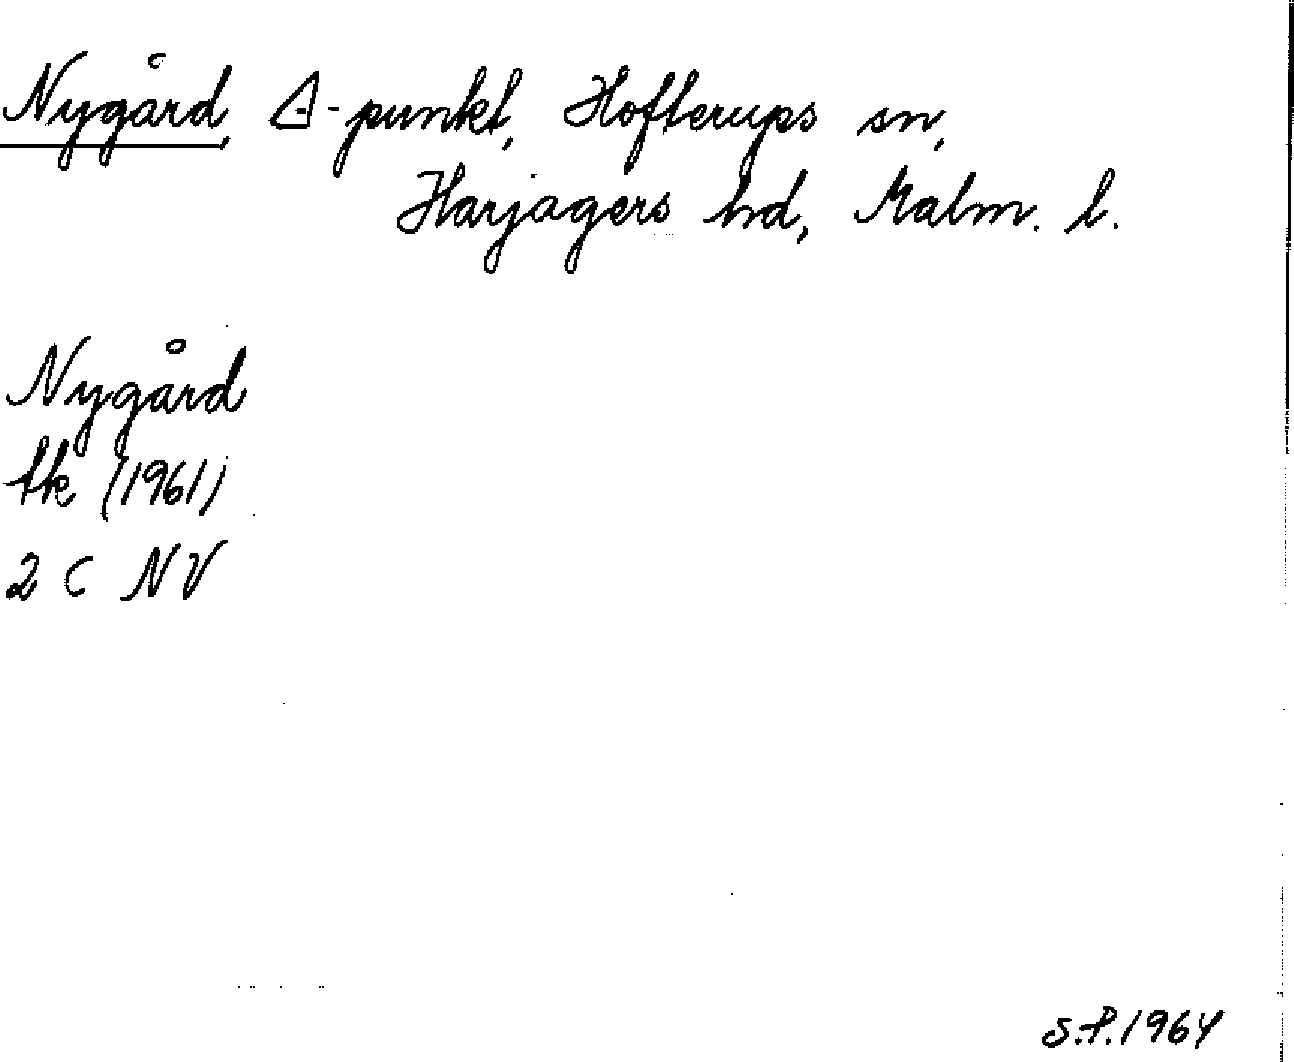 Nygård, △-punkt, Hofterups sn,
Harjagers hd, Malm. l.
Nygård
tk (1961)
2 C NV
S.P. 1964